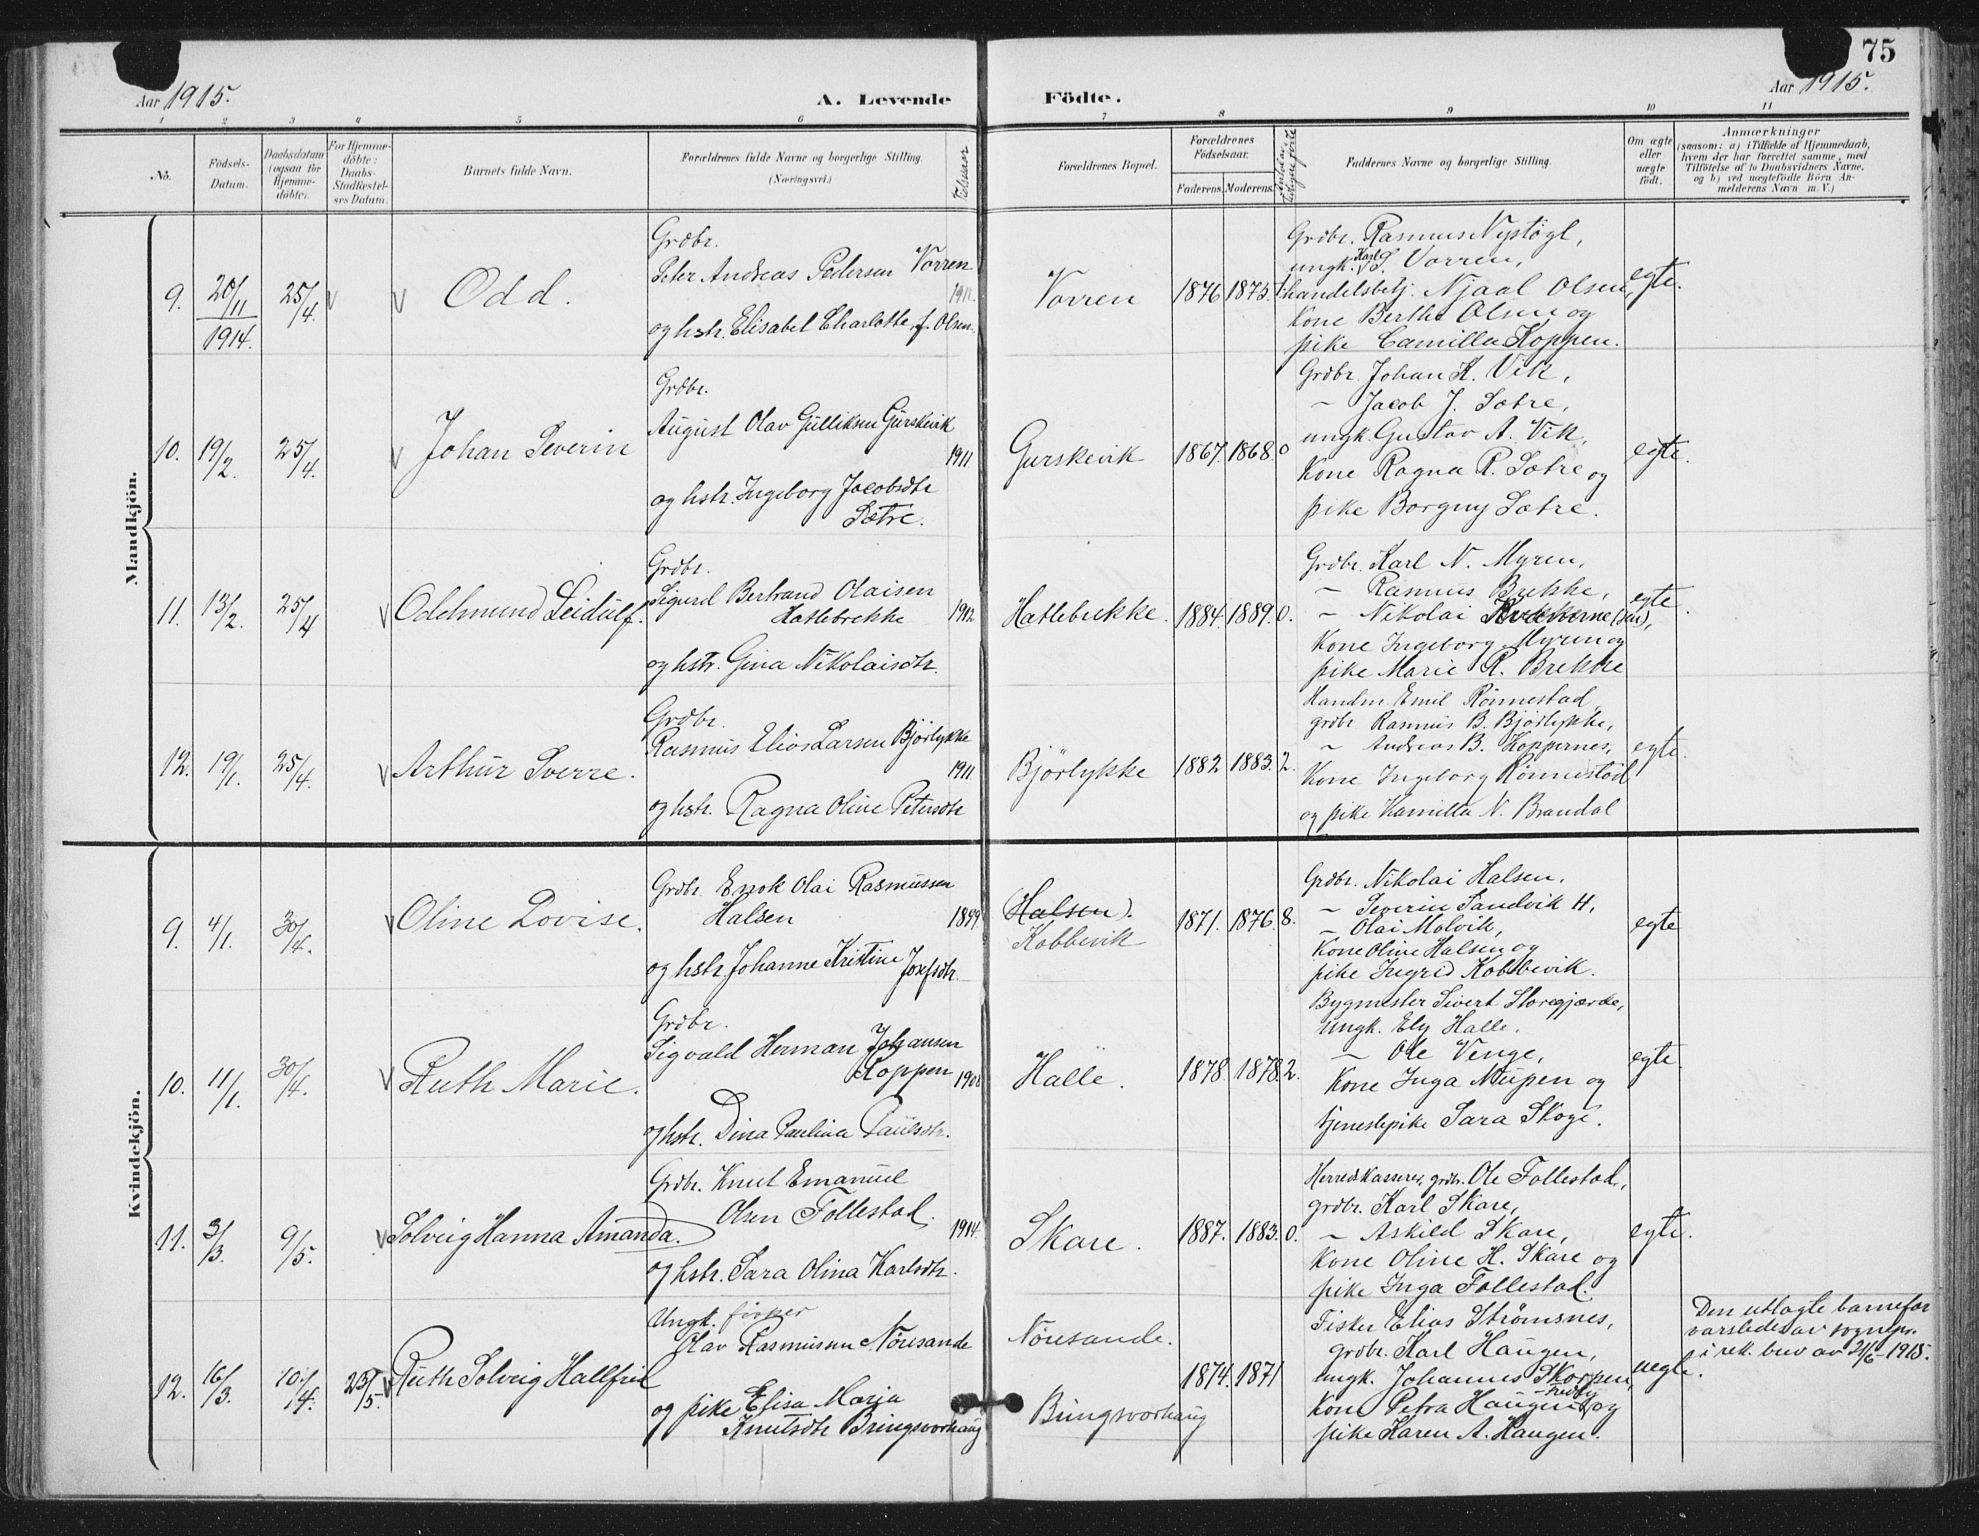 75
Aar 1915.
A. Levende
Födte.
Aar 1915.
1 2 3 4 5 6 7 8 9 10 11
No.
Födsels-
Datum.
Daabsdatum
(ogsaa for
Hjemme-
döbte).
For Hjemme-
döbte:
Daabs-
Stadfæstel-
ses Datum.
Barnets fulde Navn.
Forældrenes fulde Navne og borgerlige Stilling.
(Næringsvei.)
Forældrenes Bopæl.
Forældrenes
Födselsaar.
Faderens. Moderens.
Faddernes Navne og borgerlige Stilling.
Om ægte
eller
uægte
födt.
Anmærkninger
(saasom: a) i Tilfælde af Hjemmedaab,
hvem der har forrettet samme, med
Tilföielse af to Daabsvidners Navne,
og b) ved uægtefödte Börn An-
melderens Navn m. V.)
Mandkjön.
9.
20/11
1914.
25/4.
Odd.
Grdbr.
Peter Andreas Pedersen Vorren
og hstr. Elisabet Charlotte, f. Olsen.
Vorren
1876 1875
Grdbr. Rasmus Nystøyl,
ungk. Karl S. Vorren,
handelsbetj. Njaal Olsen,
Kone Berthe Olsen og
pike Camilla Koppen.
egte.
10.
19/2.
25/4.
Johan Severin
Grdbr.
August Olav Gulliksen Gurskevik
1911
og hstr. Ingeborg Jacobsdtr
Sætre.
Gurskevik
1867. 1868. 0
Grdbr. Johan K. Vik,
– Jacob J. Sætre,
ungk. Gustav A. Vik,
Kone Ragna R. Sætre og
pike Borgny Sætre.
egte.
11.
13/2.
25/4
Oddmund Leidulf.
Grdbr.
Sigurd Bertrand Olaisen
Hatlebrekke
1912
og hstr. Gina Nikolaisdtr.
Hatlebrekke.
1884. 1889. 0.
Grdbr. Karl N. Myren,
– Rasmus Brekke,
– Nikolai
Kone Ingeborg Myren og
pike Marie R. Brekke
egte.
12.
19/1.
25/4.
Arthur Sverre.
Grdbr.
Rasmus Elias Larsen Bjørlykke
1911
og hstr. Ragna Oline Petersdtr
Bjørlykke
1882 1883. 2.
Handm. Emil Rønnestad
grdbr. Rasmus B. Bjørlykke,
– Andreas B. Koppernes,
Kone Ingeborg Rønnestad
og pike Kamilla N. Brandal
egte.
Kvindekjön.
9.
4/1.
30/4.
Oline Lovise.
Grdbr. Enok Olai Rasmussen
Halsen
1899
og hstr. Johanne Kristine Josefsdtr.
(Halsen).
Kobbevik
1871. 1876. 8.
Grdbr. Nikolai Halsen,
– Severin Sandvik H,
– Olai Molvik,
Kone Oline Halsen og
pike Ingrid Kobbevik.
egte
10.
11/1.
30/4.
Ruth Marie.
Grdbr.
Sigvald Herman Johansen
Koppen
og hstr. Dina Paulina Paulsdtr.
Halle.
1878. 1878. 2.
Bygmester Sivert Storegjærde,
Ungk. Ely Halle,
– Ole Venge,
Kone Inga Mupen og
tjenestepike Sara Skoge.
egte.
11.
3/3.
9/5.
Solveig Hanna Amanda.
Grdbr. Knut Emanuel
Olsen Follestad.
1914.
og hstr. Sara Olina Karlsdtr.
Skare.
1887. 1883. 0.
Herredskasserer, grdbr. Ole Follestad,
grdbr. Karl Skare,
– Askild Skare,
Kone Oline H. Skare og
pike Inga Follestad.
egte.
12.
16/3.
10/4.
23/5.
Ruth Solveig Hallfrid
Ungk. fisker
Olav Rasmussen Nøresande
og pike Elisa Marja
Knutsdtr Bringsvorhaug
Nøresande.
Bringsvorhaug
1874. 1871
Fisker Elias Strømsnes,
grdbr. Karl Haugen,
ungk. Johannes Skorpen,
Kone Petra Haugen og
pike Karen A. Haugen.
uegte.
Den utlagte barnefar
varsledes av sognepr.
i rek. brev av 21/6-1915.